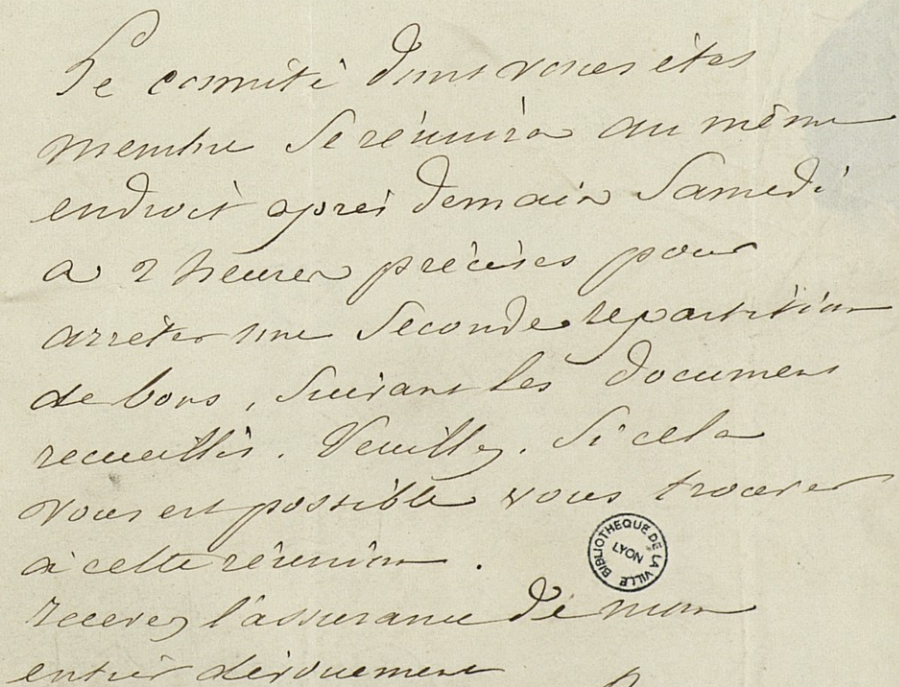 Le comité dont vous êtes
membre se réunira au même
endroit après demain Samedi
a 2 heures précises pour
arrêter une Seconde repartition
de bons, suivant les documens
recueillis. Veuillez. Si cela
vous est possible vous trouver
à cette réunion.
BIBLIOTHEQUE DE LA VILLE
LYON
recevez l'assurance de mon
entier dévouement